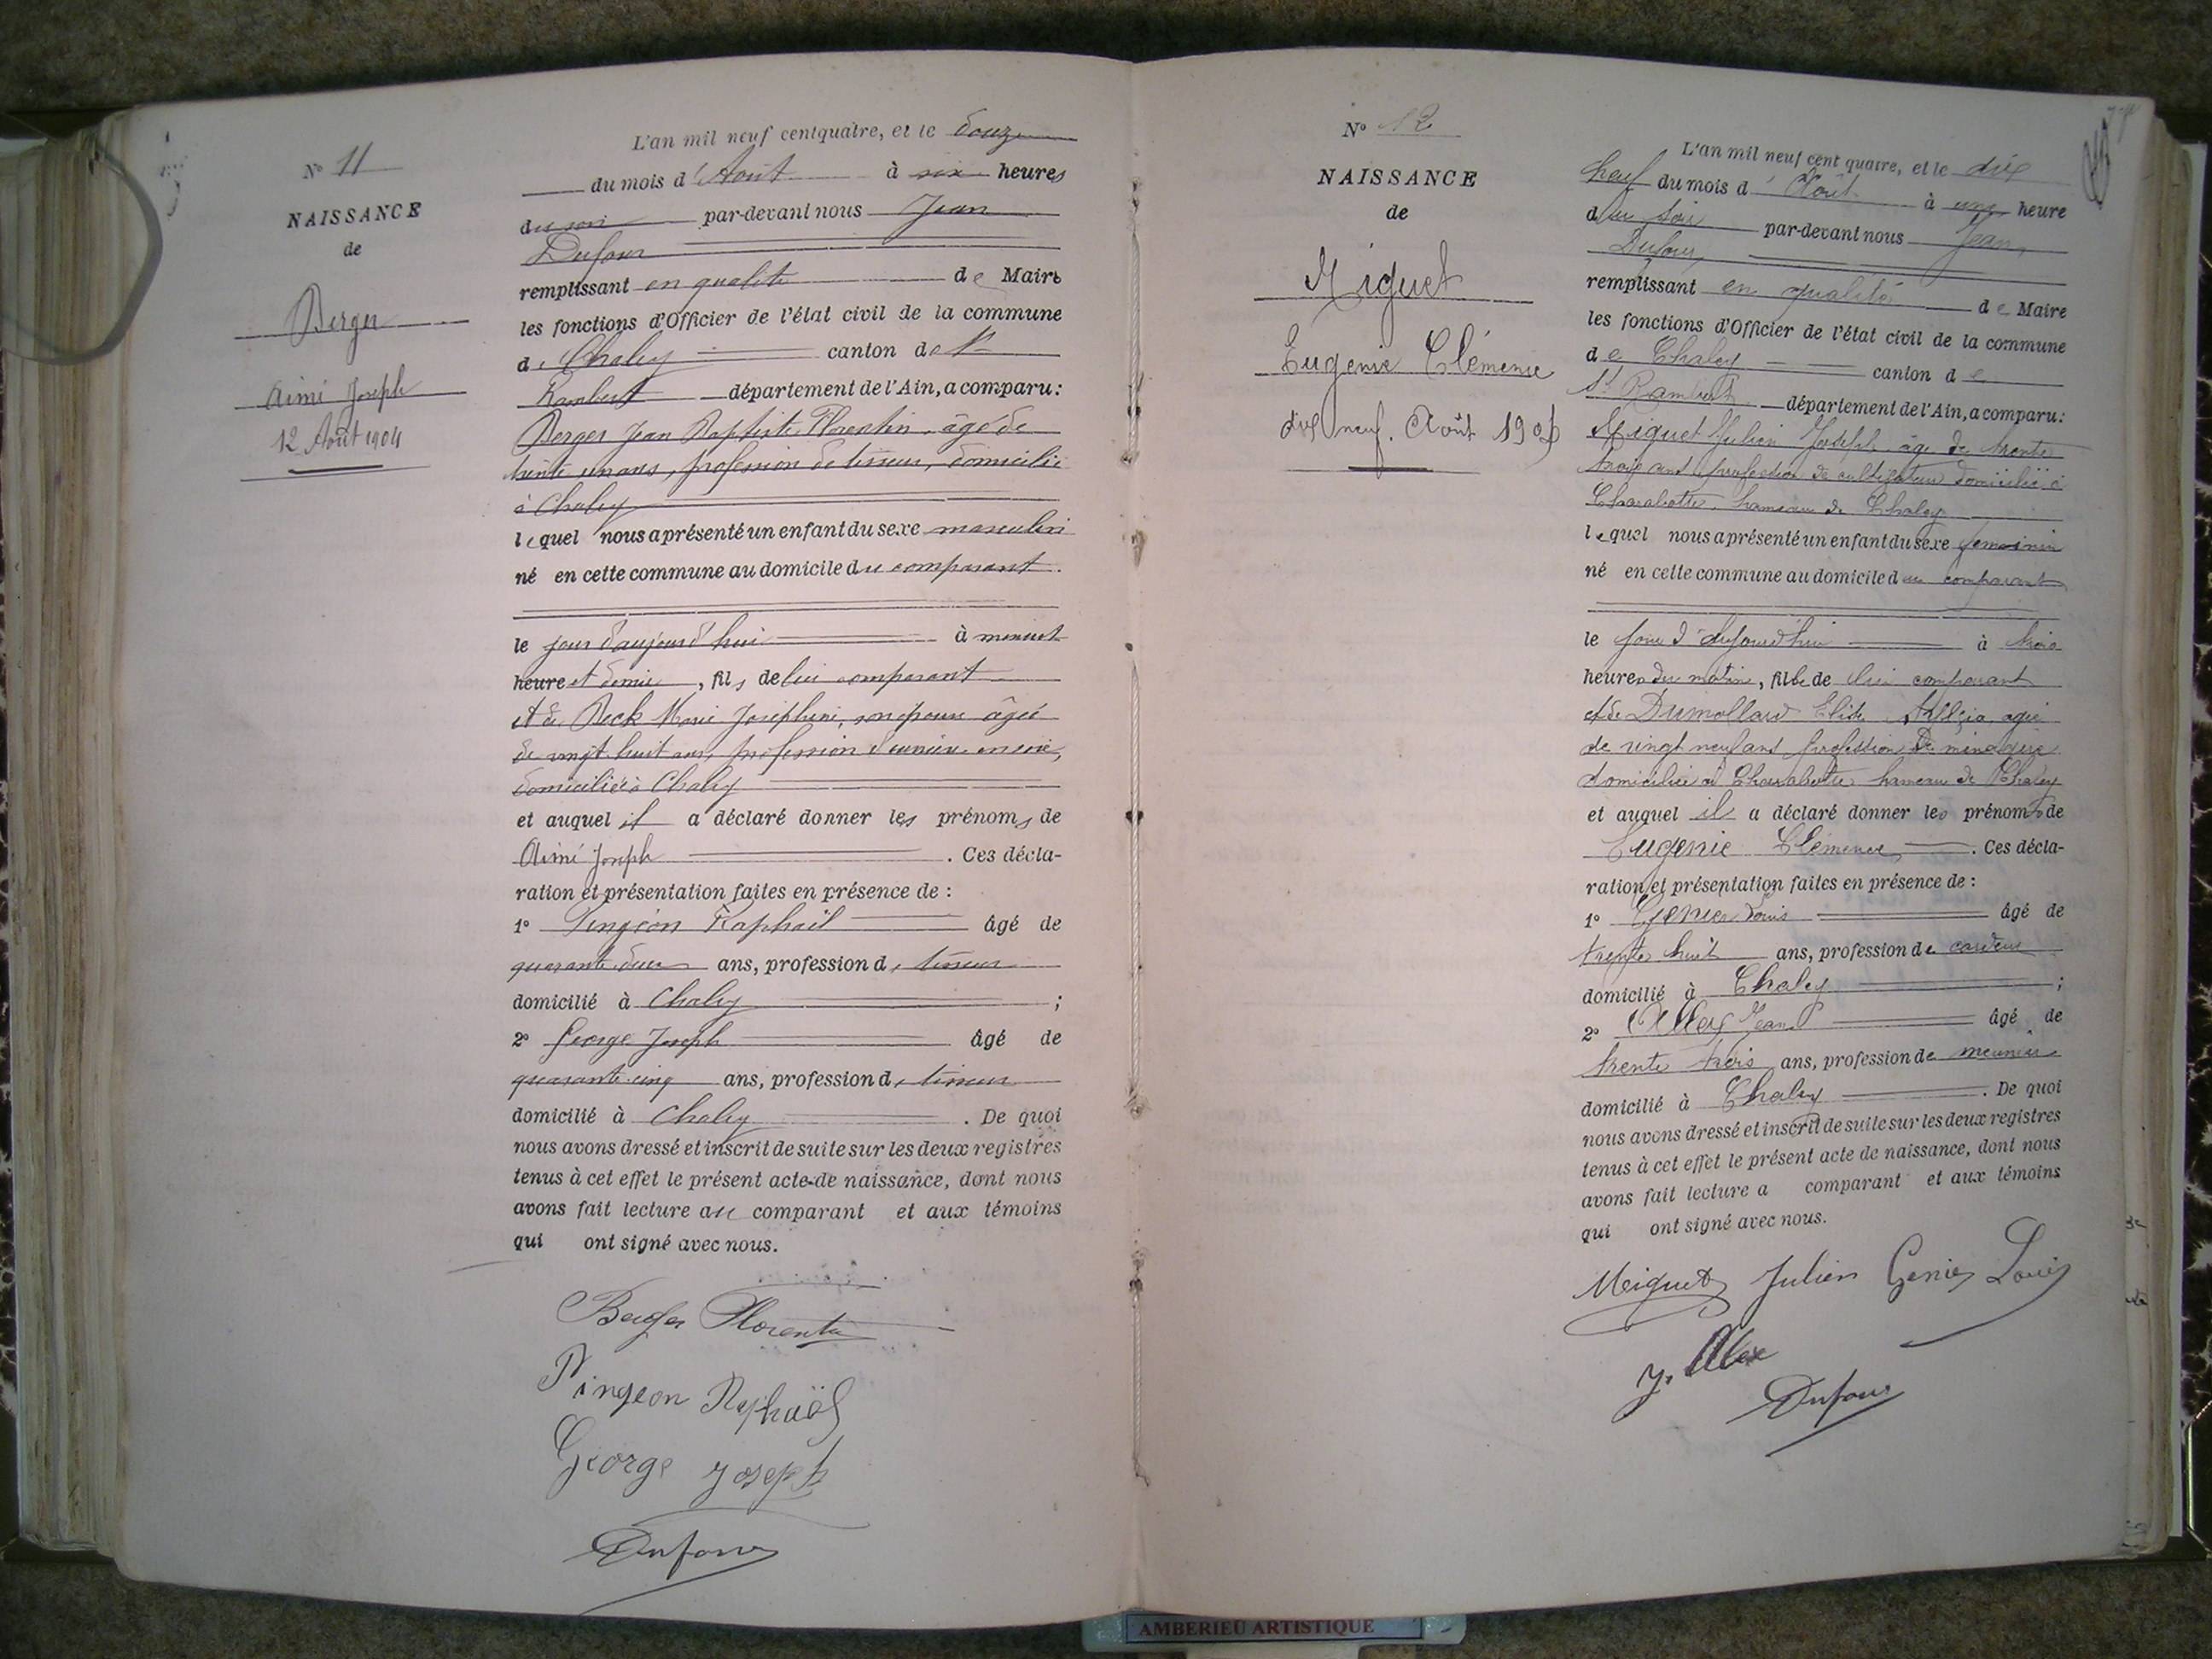 N° 11
NAISSANCE
de
Berger
Aimé Joseph
12 Août 1904
L'an mil neuf cent quatre, et le douze
du mois d'Août à six heures
du soir par-devant nous Jean
Dufour
remplissant en qualité de Maire
les fonctions d'Officier de l'état civil de la commune
de Chaley canton de St
Rambert département de l'Ain, a comparu :
Berger Jean Baptiste Florentin, âgé de
trente un ans, profession de tisseur, domicilié
à Chaley
lequel nous a présenté un enfant du sexe masculin
né en cette commune au domicile du comparant.
le jour d'aujourd'hui à minuit
heure et demie, fils de lui comparant
et de Beck Marie Joséphine, son épouse âgée
de vingt huit ans, profession d'ouvrière en soie,
domiciliée à Chaley
et auquel il a déclaré donner les prénoms de
Aimé Joseph. Ces décla-
ration et présentation faites en présence de :
1° Pingeon Raphaël âgé de
quarante deux ans, profession de tisseur
domicilié à Chaley ;
2° George Joseph âgé de
quarante cinq ans, profession de tisseur
domicilié à Chaley. De quoi
nous avons dressé et inscrit de suite sur les deux registres
tenus à cet effet le présent acte de naissance, dont nous
avons fait lecture au comparant et aux témoins
qui ont signé avec nous.
Berger Florentin
Pingeon Raphaël
George Joseph
Dufour
N° 12
NAISSANCE
de
Miguet
Eugénie Clémence
dix neuf. Août 1904
L'an mil neuf cent quatre, et le dix
neuf du mois d'Août à une heure
du soir par-devant nous Jean
Dufour
remplissant en qualité de Maire
les fonctions d'Officier de l'état civil de la commune
de Chaley canton de
St Rambert département de l'Ain, a comparu :
Miguet Julien Joseph, âgé de trente
trois ans profession de cultivateur domicilié à
Charabotte, hameau de Chaley
lequel nous a présenté un enfant du sexe féminin
né en cette commune au domicile du comparant
le jour d'aujourd'hui à trois
heures du matin, fille de lui comparant
et de Dumollard Elise agée
de vingt neuf ans profession de ménagère
domiciliée à Charabotte hameau de Chaley
et auquel il a déclaré donner les prénoms de
Eugénie Clémence. Ces décla-
ration et présentation faites en présence de :
1° Genier Louis âgé de
trente huit ans, profession de cardeur
domicilié à Chaley ;
2° Allex Jean âgé de
trente trois ans, profession de meunier
domicilié à Chaley. De quoi
nous avons dressé et inscrit de suite sur les deux registres
tenus à cet effet le présent acte de naissance, dont nous
avons fait lecture a comparant et aux témoins
qui ont signé avec nous.
Meiguet Julien Genier Louis
J. Allex
Dufour
AMBERIEU ARTISTIQUE